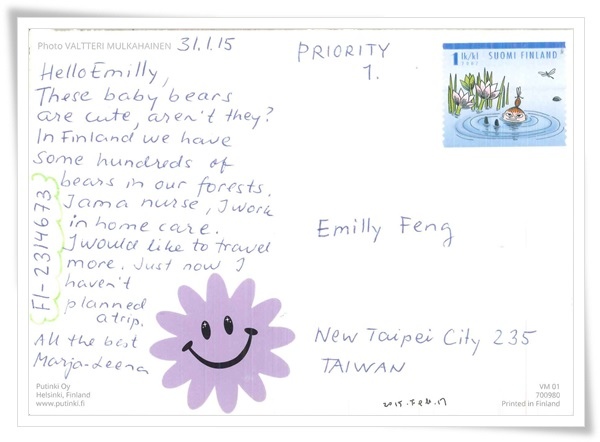 Photo VALTTERI MULKAHAINEN
31.1.15
Hello Emilly,
These baby bears
are cute, aren't they?
In Finland we have
some hundreds of
bears in our forests.
I am a nurse, I work
in home care.
I would like to travel
more. Just now I
haven't
planned
a trip.
All the best
Marja-Leena
FI-2314673
Putinki Oy
Helsinki, Finland
www.putinki.fi
PRIORITY
1.
1 lk/kl SUOMI FINLAND
2007
Emilly Feng
New Taipei City 235
TAIWAN
2015. Feb. 17
VM 01
700980
Printed in Finland